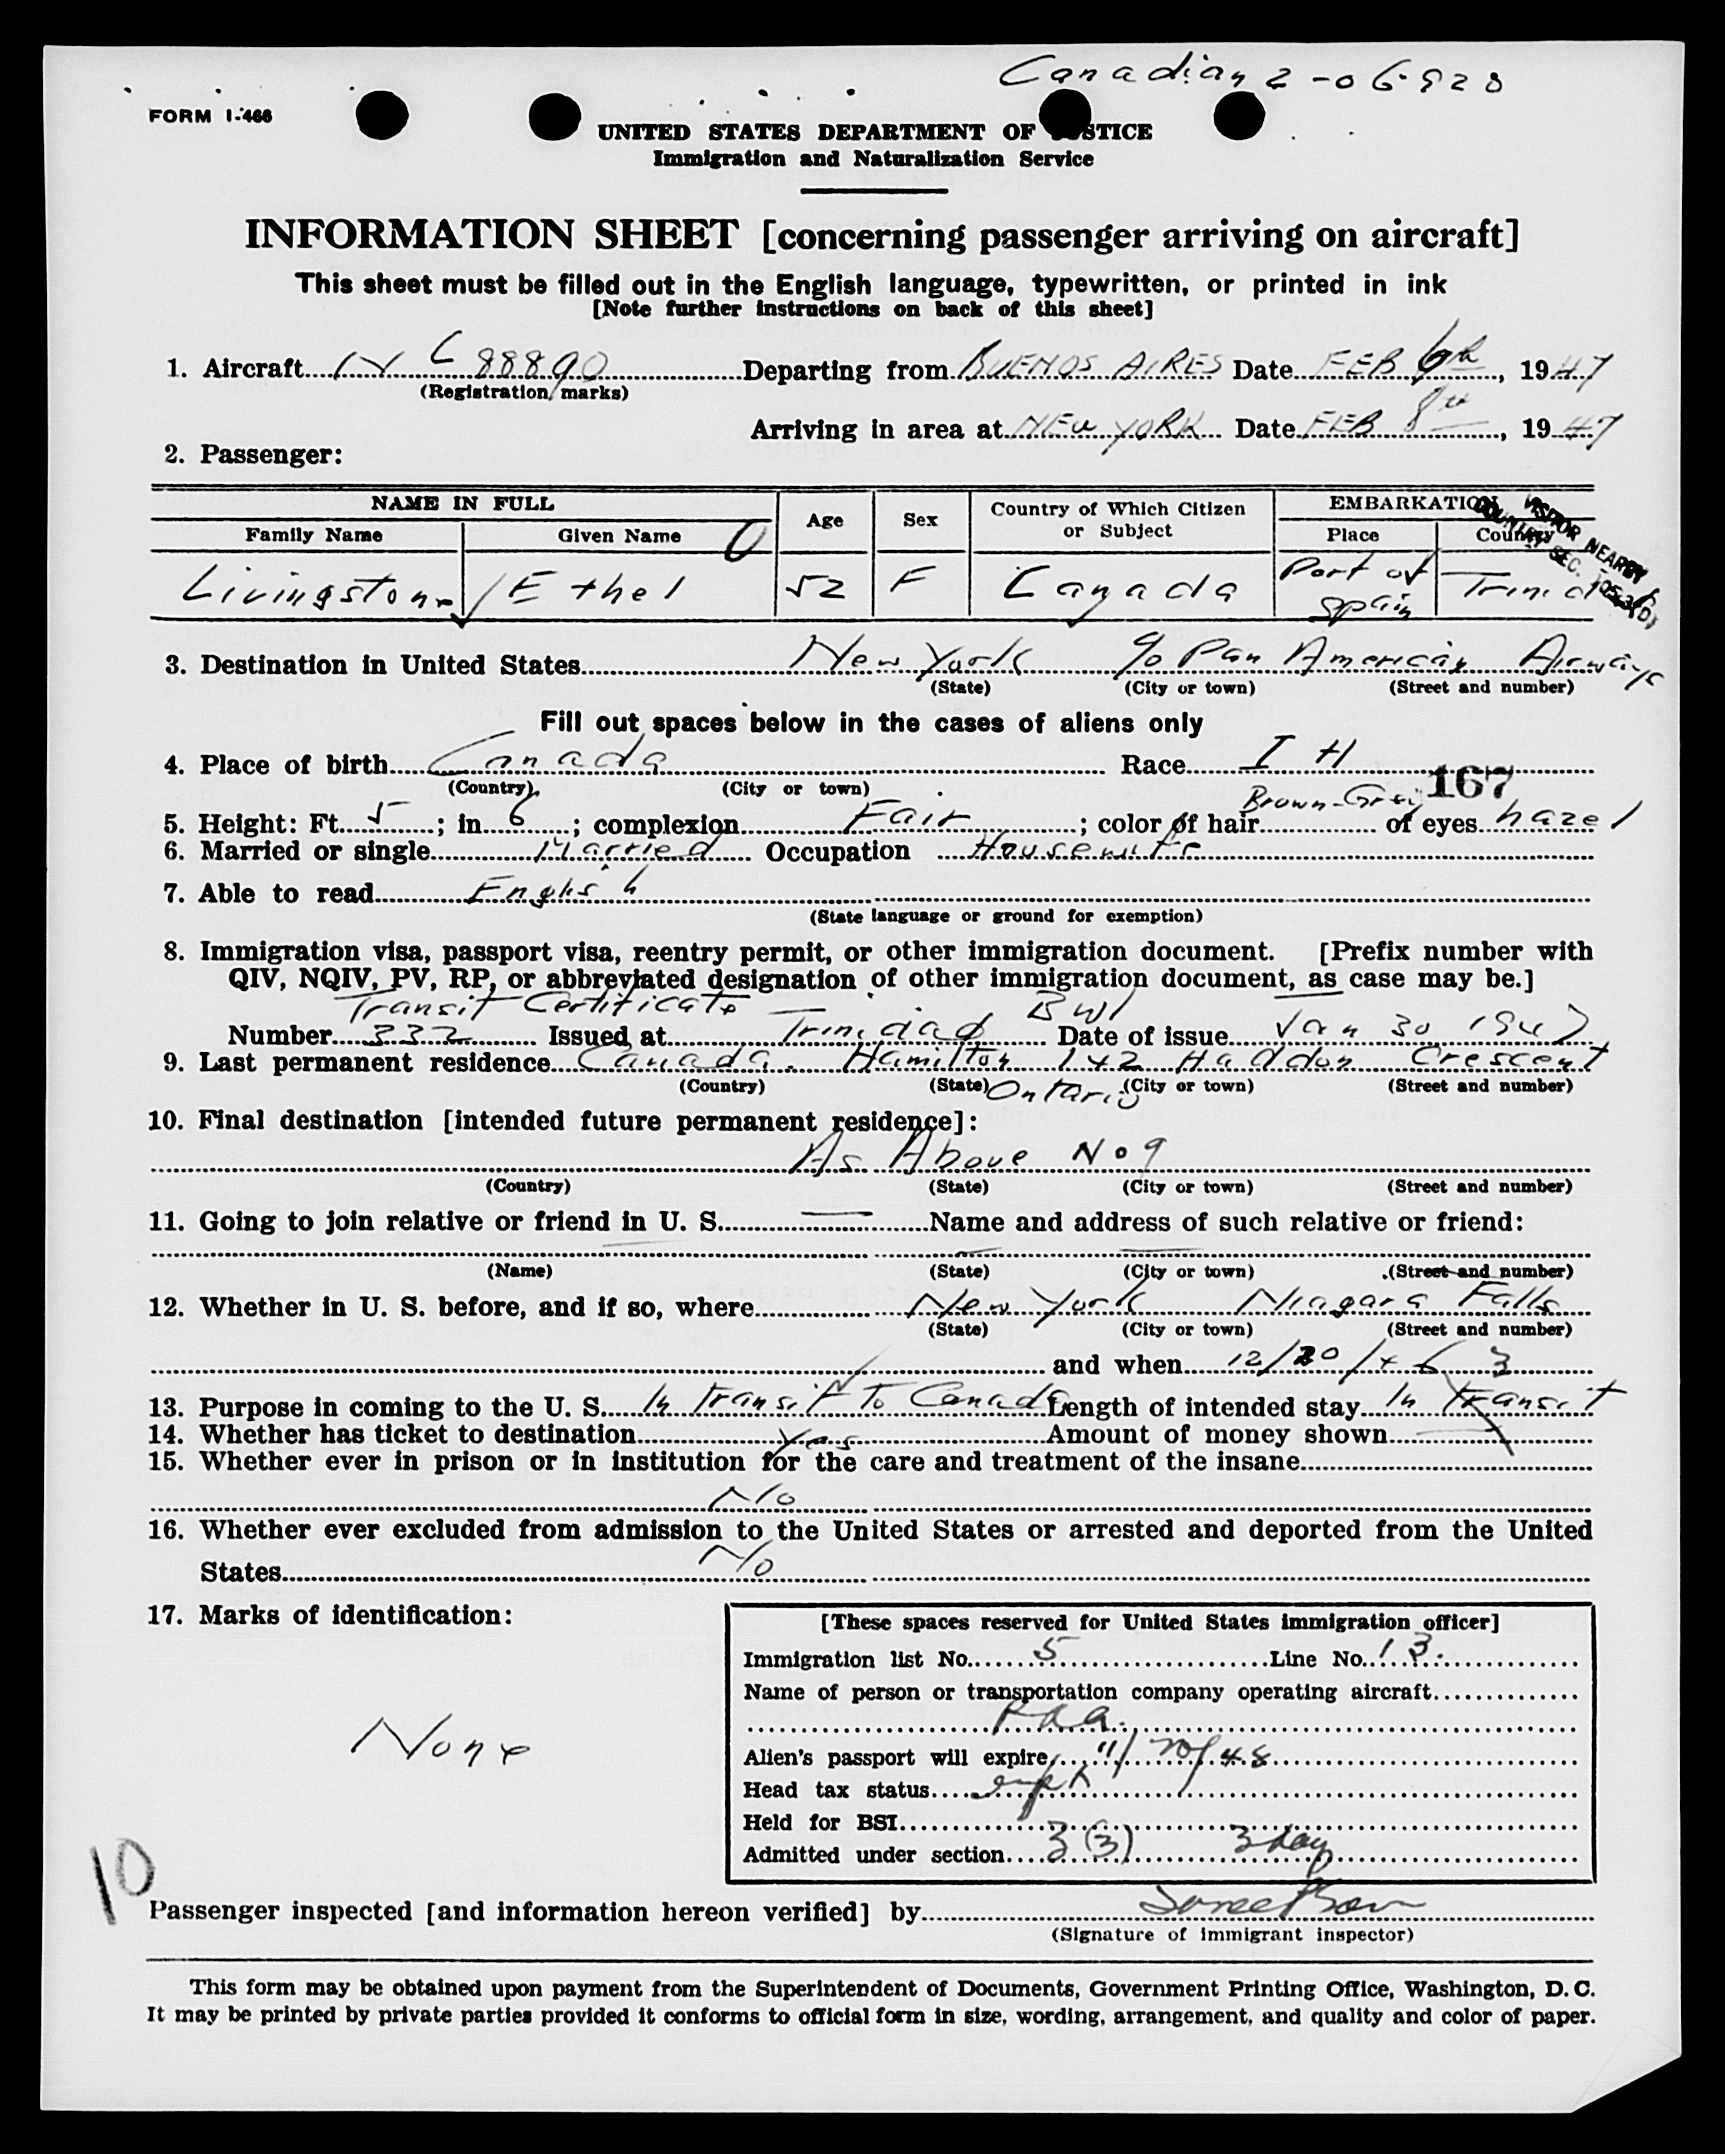 Canadian 2-06920
FORM I-466
UNITED STATES DEPARTMENT OF JUSTICE
Immigration and Naturalization Service
INFORMATION SHEET [concerning passenger arriving on aircraft]
This sheet must be filled out in the English language, typewritten, or printed in ink
[Note further instructions on back of this sheet]
1. Aircraft NC 88890 Departing from BUENOS AIRES Date FEB 6th, 1947
(Registration marks)
Arriving in area at NEW YORK Date FEB 8th, 1947
2. Passenger:
NAME IN FULL Age Sex Country of Which Citizen or Subject EMBARKATION
Family Name Given Name Place Country
VISITOR NEARBY
COUNTRY SEC.
Livingstone Ethel 52 F Canada Port of Spain Trinidad
3. Destination in United States New York c/o Pan American Airways
(State) (City or town) (Street and number)
Fill out spaces below in the cases of aliens only
4. Place of birth Canada Race I H
167
(Country) (City or town)
5. Height: Ft. 5; in. 6; complexion Fair; color of hair Brown-Grey of eyes hazel
6. Married or single Married Occupation Housewife
7. Able to read English
(State language or ground for exemption)
8. Immigration visa, passport visa, reentry permit, or other immigration document. [Prefix number with
QIV, NQIV, PV, RP, or abbreviated designation of other immigration document, as case may be.]
Transit Certificate
Number 332 Issued at Trinidad BWI Date of issue Jan 30 1947
9. Last permanent residence Canada. Hamilton 142 Haddon Crescent
(Country) (State) Ontario (City or town) (Street and number)
10. Final destination [intended future permanent residence]:
As Above No 9
(Country) (State) (City or town) (Street and number)
11. Going to join relative or friend in U. S. — Name and address of such relative or friend:
(Name) (State) (City or town) (Street and number)
12. Whether in U. S. before, and if so, where New York Niagara Falls
(State) (City or town) (Street and number)
and when 12/20/46 3
13. Purpose in coming to the U. S. In transit To Canada Length of intended stay In Transit
14. Whether has ticket to destination Yes Amount of money shown —
15. Whether ever in prison or in institution for the care and treatment of the insane
No
16. Whether ever excluded from admission to the United States or arrested and deported from the United
States No
17. Marks of identification:
None
[These spaces reserved for United States immigration officer]
Immigration list No. 5 Line No. 13.
Name of person or transportation company operating aircraft
PAA.
Alien's passport will expire 11/20/48
Head tax status
Held for BSI
Admitted under section 3(3) 3 day
10
Passenger inspected [and information hereon verified] by
(Signature of immigrant inspector)
This form may be obtained upon payment from the Superintendent of Documents, Government Printing Office, Washington, D. C.
It may be printed by private parties provided it conforms to official form in size, wording, arrangement, and quality and color of paper.